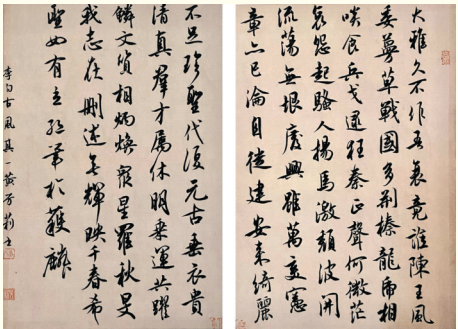 大雅久不作吾衰竟誰陳王風
委蔓草戰國多荊榛龍虎相
啖食兵戈逮狂秦正聲何微茫
哀怨起騷人揚馬激頹波開
流蕩無垠廢興雖萬變憲
章亦已淪自從建安來綺麗
不足珍聖代復元古垂衣貴
清真羣才屬休明乘運共躍
鱗文質相炳煥眾星羅秋旻
我志在刪述垂輝映千春希
聖如有立絕筆於獲麟
李白古風其一黃莉